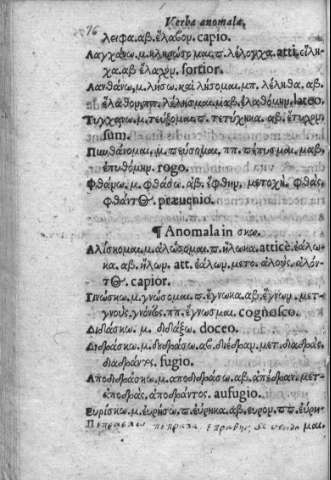 Verba anomala.
λειφα. αβ. ἔλαβον. capio.
Λαγχάνω. μ. κληρώσομαι. π. λέλογχα. atti. εἴλη-
χα. αβ ἔλαχον. sortior.
Λανθάνω. μ. λήσω. καὶ λήσομαι. μπ. λέληθα. αβ.
ἔλαθον. ππ. λέλησμαι. μαβ. ἐλαθόμην. lateo.
Τυγχάνω. μ. τεύξομαι. π. τετύχηκα. αβ. ἔτυχον.
sum.
Πυνθάνομαι. μ. πεύσομαι. ππ. πέπυσμαι. μαβ.
ἐπυθόμην. rogo.
Φθάνω. μ. φθάσω. αβ. ἔφθην. μετοχὴ. φθὰς.
φθάντος. præuenio.
¶ Anomala in σκω.
Αλίσκομαι. μ. ἁλώσομαι. π. ἥλωκα. atticè. ἑάλω-
κα. αβ. ἥλων. att. ἑάλων. μετο. ἁλοὺς. ἁλόν-
τος. capior.
Γινώσκω. μ. γνώσομαι. π. ἔγνωκα. αβ. ἔγνων. μετ.
γνοὺς. γνόντος. ππ. ἔγνωσμαι. cognosco.
Διδάσκω. μ. διδάξω. doceo.
Διδράσκω. μ. διδράσω. αβ. διέδραν. μετ. διαδρὰς.
διαδράντος. fugio.
Αποδιδράσκω. μ. αποδιδράσω. αβ. ἀπέδραν. μετ.
ἀποδρὰς. ἀποδράντος. aufugio.
Ευρίσκω. μ. εὑρήσω. π. εὕρηκα. αβ. εὗρον. π. π. εὕρη-
μαι.